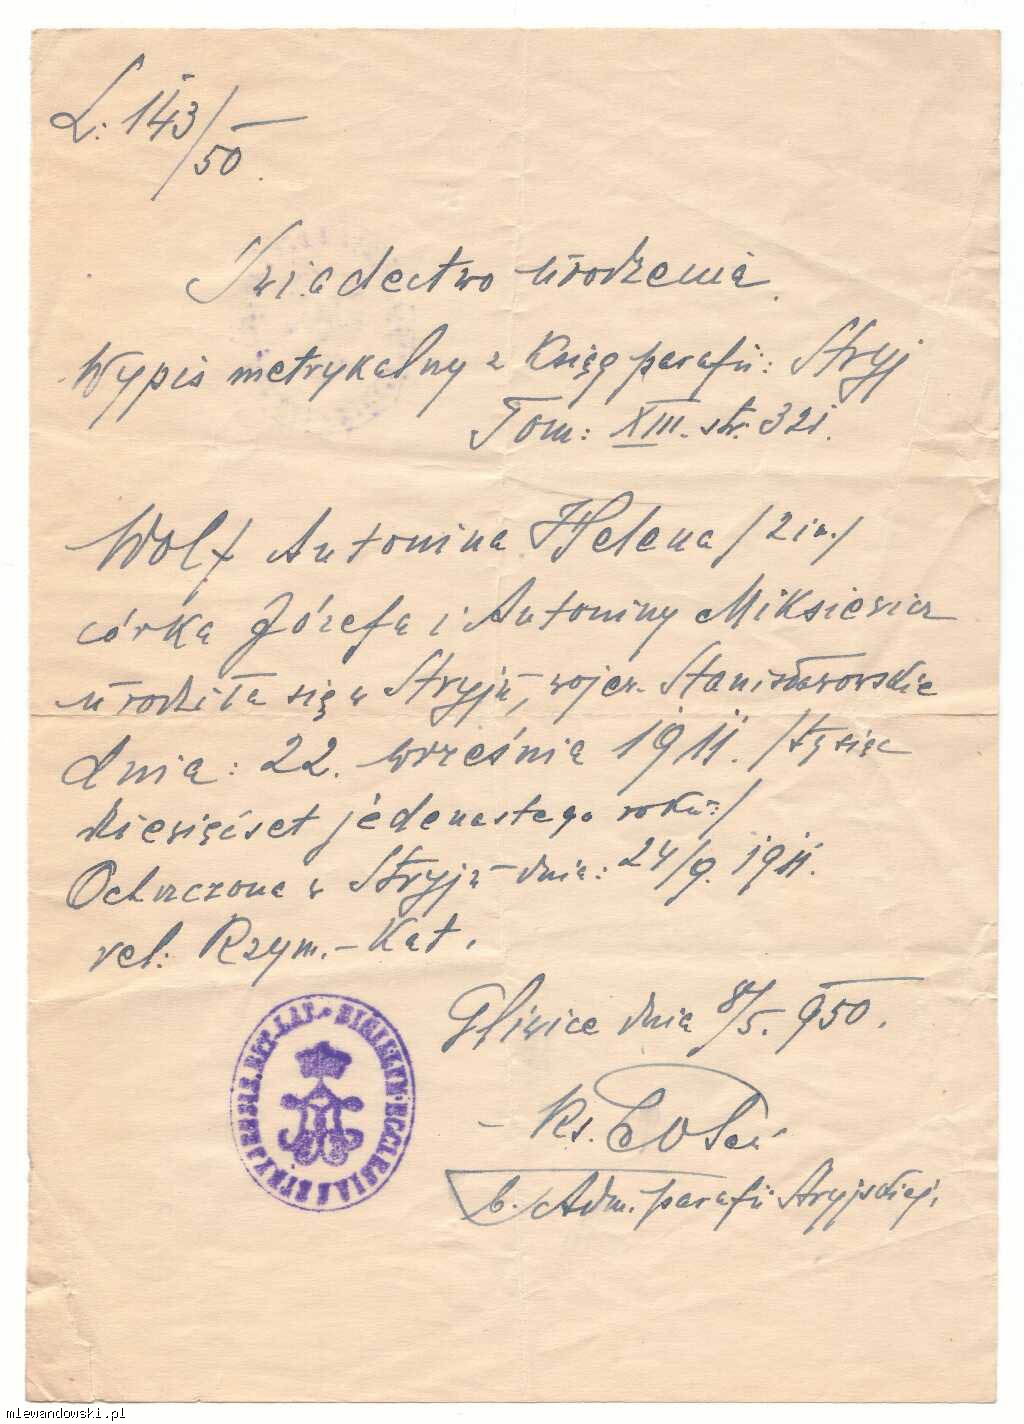 L: 143/50.
Świadectwo urodzenia.
Wypis metrykalny z Ksiąg parafii: Stryj
Tom: XIII. str. 321.
Wolf Antonina Helena /2 im./
córka Józefa i Antoniny Miksiewicz
urodziła się w Stryju, wojew. Stanisławowskie
dnia: 22. września 1911. /tysiąc
dziewięćset jedenastego roku:/
Ochrzczona w Stryju dnia: 24/9. 1911.
rel: Rzym.-Kat.
Gliwice dnia 8/5. 950.
- Ks.
b. Adm. parafii Stryjskiej.
SIGILLUM ECCLESIAE STRYJENSIS RIT. LAT.
mlewandowski.pl